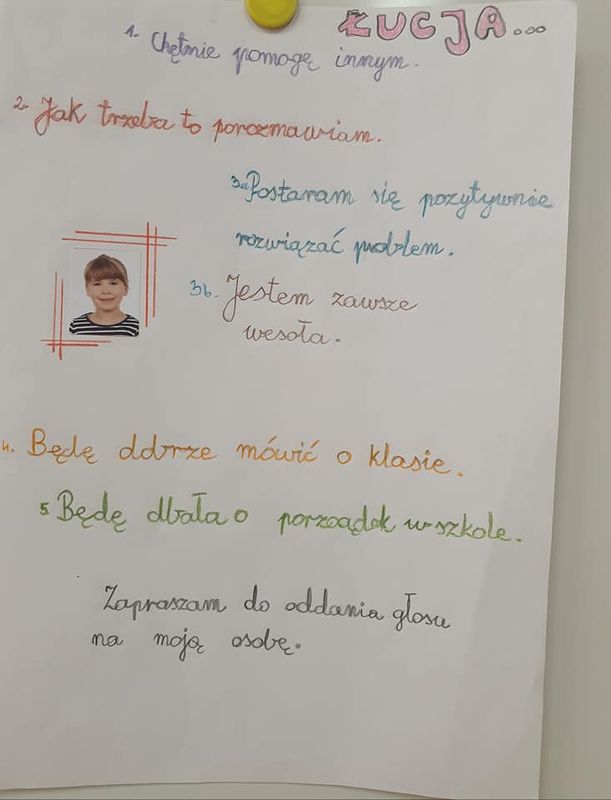 ŁUCJA...
1. Chętnie pomogę innym.
2. Jak trzeba to porozmawiam.
3a. Postaram się pozytywnie
rozwiązać problem.
3b. Jestem zawsze
wesoła.
4. Będę dobrze mówić o klasie.
5 Będę dbała o porządek w szkole.
Zapraszam do oddania głosu
na moją osobę.